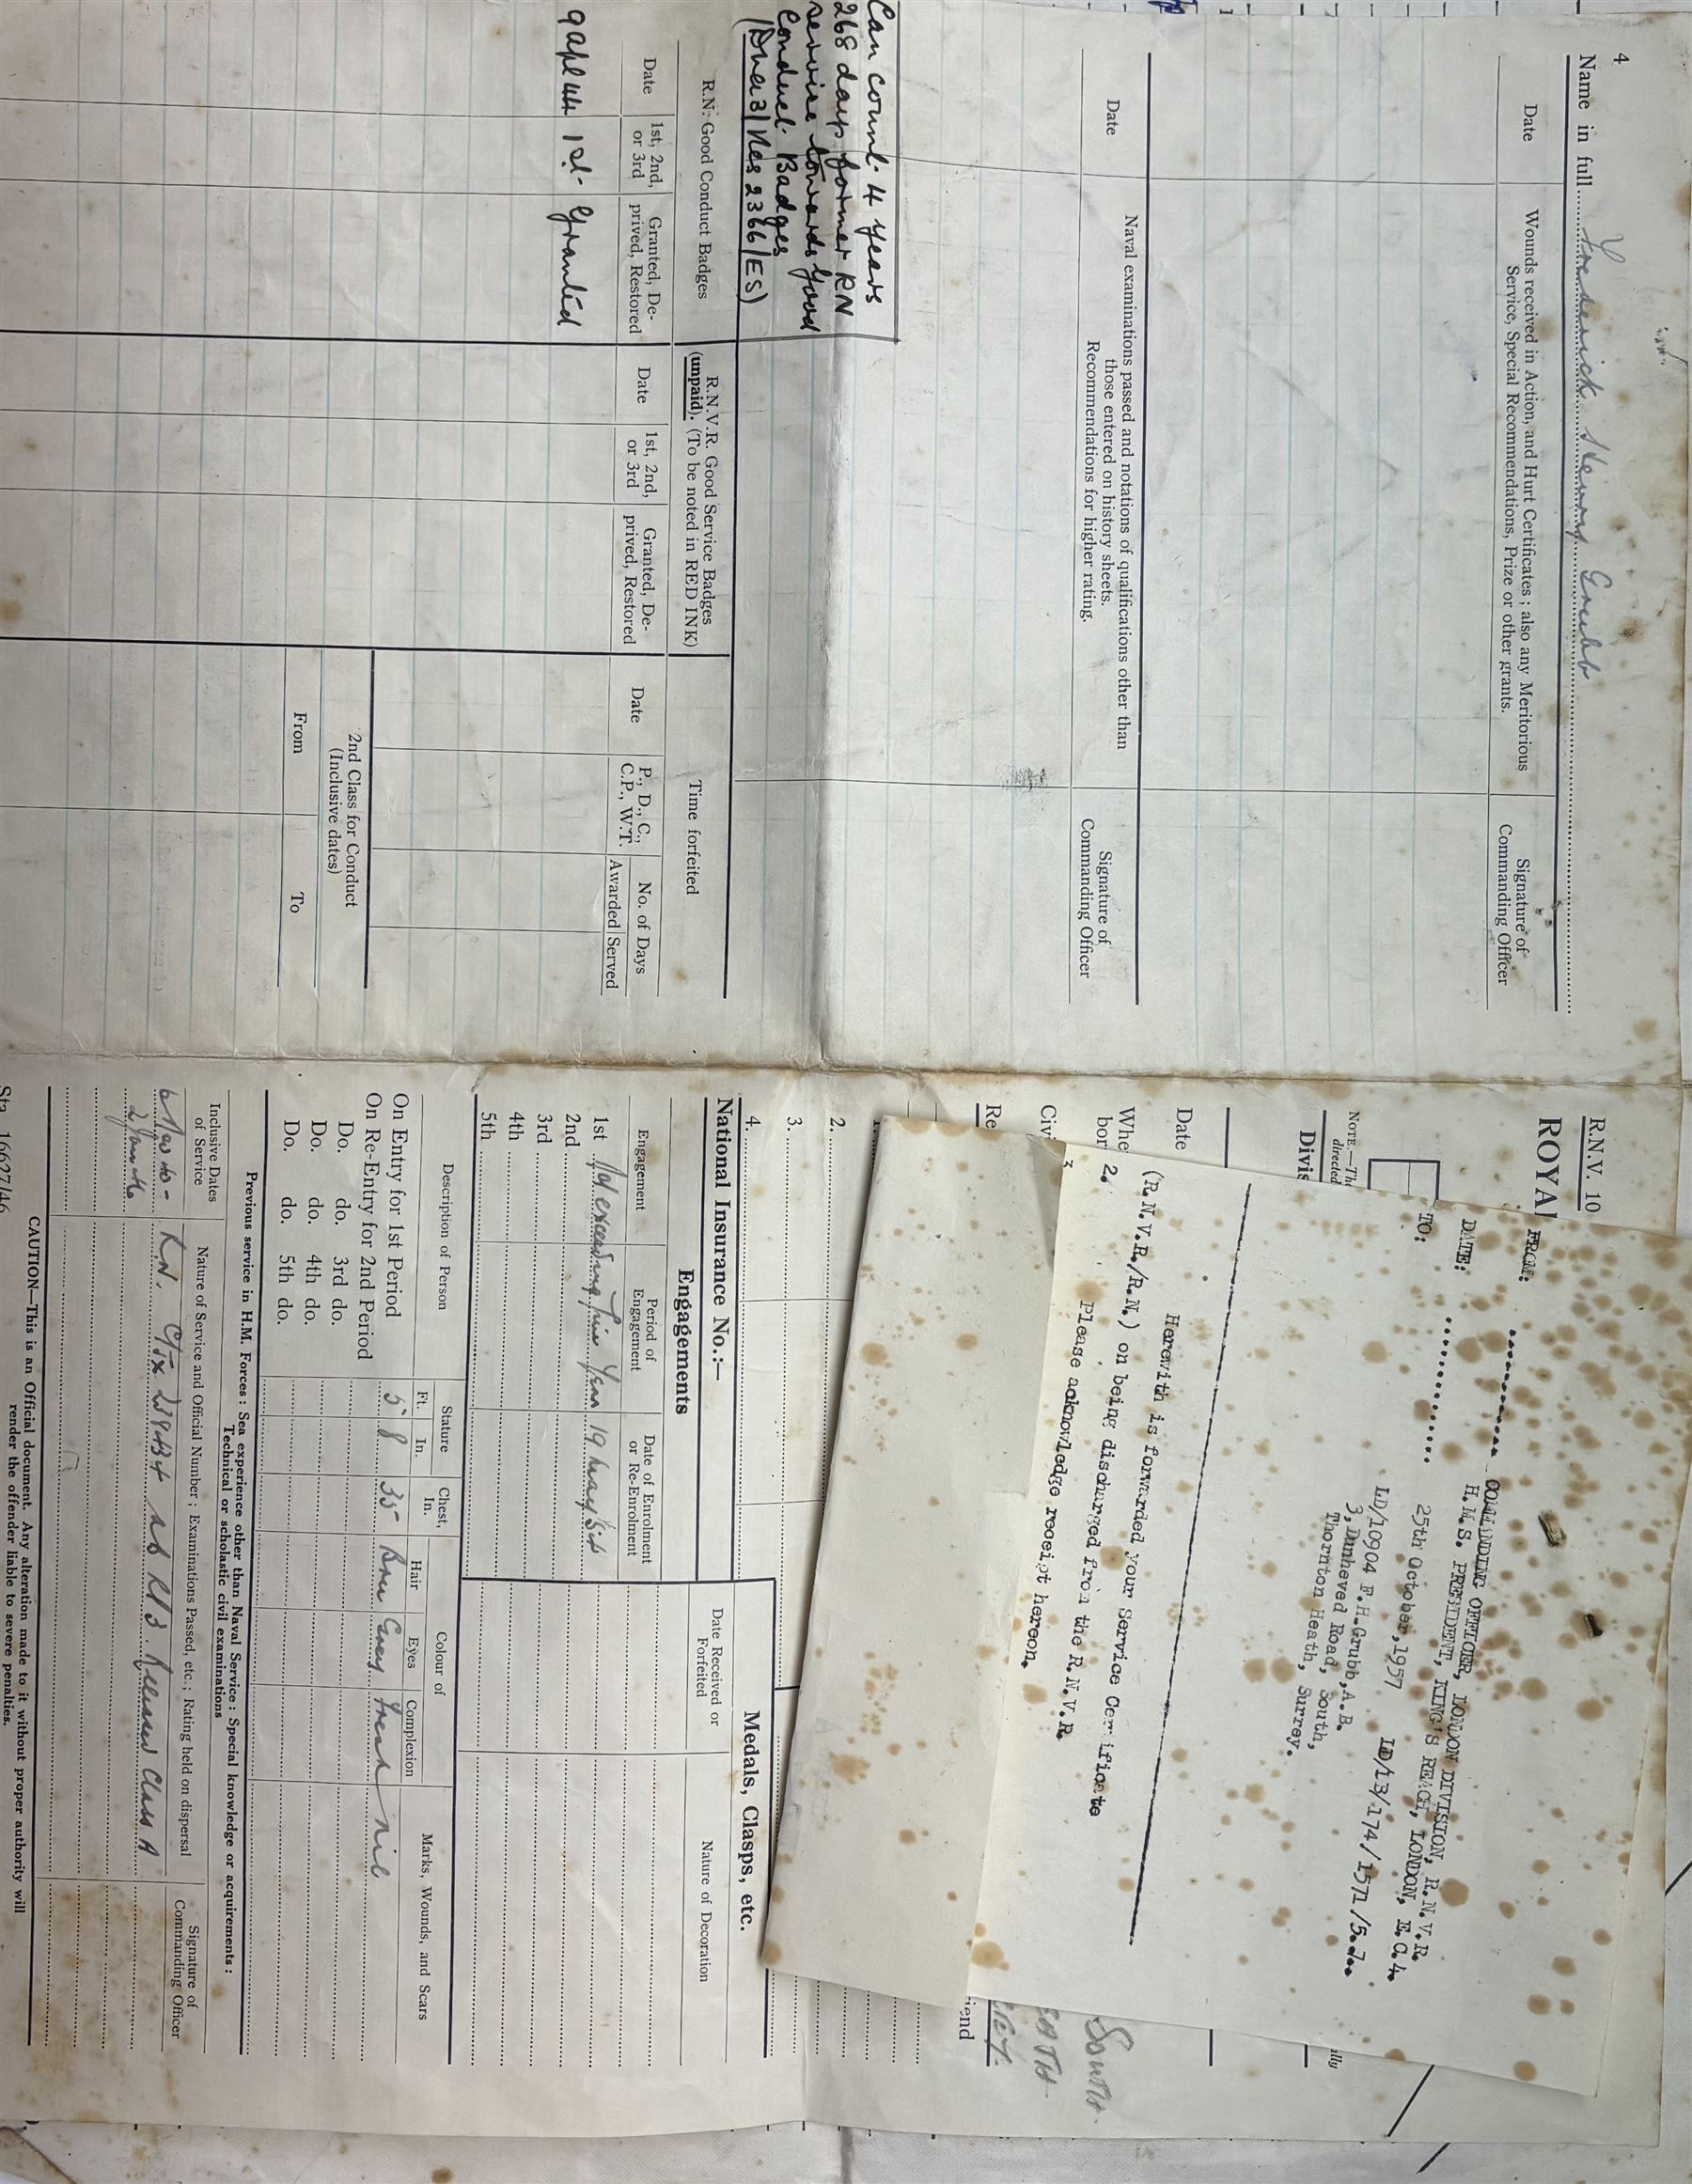 4
Name in full Frederick Henry Grubb
Date
Wounds received in Action, and Hurt Certificates; also any Meritorious
Service, Special Recommendations, Prize or other grants.
Signature of
Commanding Officer
Date
Naval examinations passed and notations of qualifications other than
those entered on history sheets.
Recommendations for higher rating.
Signature of
Commanding Officer
Can count 4 years
268 days former RN
service towards Good
Conduct Badges
R.N. Good Conduct Badges
R.N.V.R. Good Service Badges
(unpaid). (To be noted in RED INK)
Time forfeited
Date
1st, 2nd,
or 3rd
Granted, De-
prived, Restored
Date
1st, 2nd,
or 3rd
Granted, De-
prived, Restored
Date
P., D., C.,
C.P., W.T.
No. of Days
Awarded Served
9 Apl 44 1st Granted
2nd Class for Conduct
(Inclusive dates)
From To
R.N.V. 10
ROYAL
NOTE.—The
directed
Divis
Date
Whe
bor
Civi
Re
2.
3.
4.
FROM: COMMANDING OFFICER, LONDON DIVISION, R.N.V.R.
H.M.S. PRESIDENT, KING'S REACH, LONDON, E.C.4.
DATE: 25th October, 1957 LD/13/174/1571/5.J.
TO: LD/10904 F.H. Grubb, A.B.
3, Dunheved Road, South,
Thornton Heath, Surrey.
Herewith is forwarded your Service Certificate
(R.N.V.R./R.N.) on being discharged from the R.N.V.R.
2. Please acknowledge receipt hereon.
ally
South
EATH
iend
National Insurance No.:—
Engagements
Engagement
Period of
Engagement
Date of Enrolment
or Re-Enrolment
1st Not exceeding five Years 19 May 54
2nd
3rd
4th
5th
Medals, Clasps, etc.
Date Received or
Forfeited
Nature of Decoration
Description of Person
Stature
Ft. In.
Chest,
In.
Colour of
Hair Eyes Complexion
Marks, Wounds, and Scars
On Entry for 1st Period 5 8 35 Brn Grey Fresh Nil
On Re-Entry for 2nd Period
Do. do. 3rd do.
Do. do. 4th do.
Do. do. 5th do.
Previous service in H.M. Forces: Sea experience other than Naval Service: Special knowledge or acquirements:
Technical or scholastic civil examinations
Inclusive Dates
of Service
Nature of Service and Official Number; Examinations Passed, etc.; Rating held on dispersal
Signature of
Commanding Officer
R.N. AB R/3. Released Class A
CAUTION—This is an Official document. Any alteration made to it without proper authority will
render the offender liable to severe penalties.
Sta. 16627/46